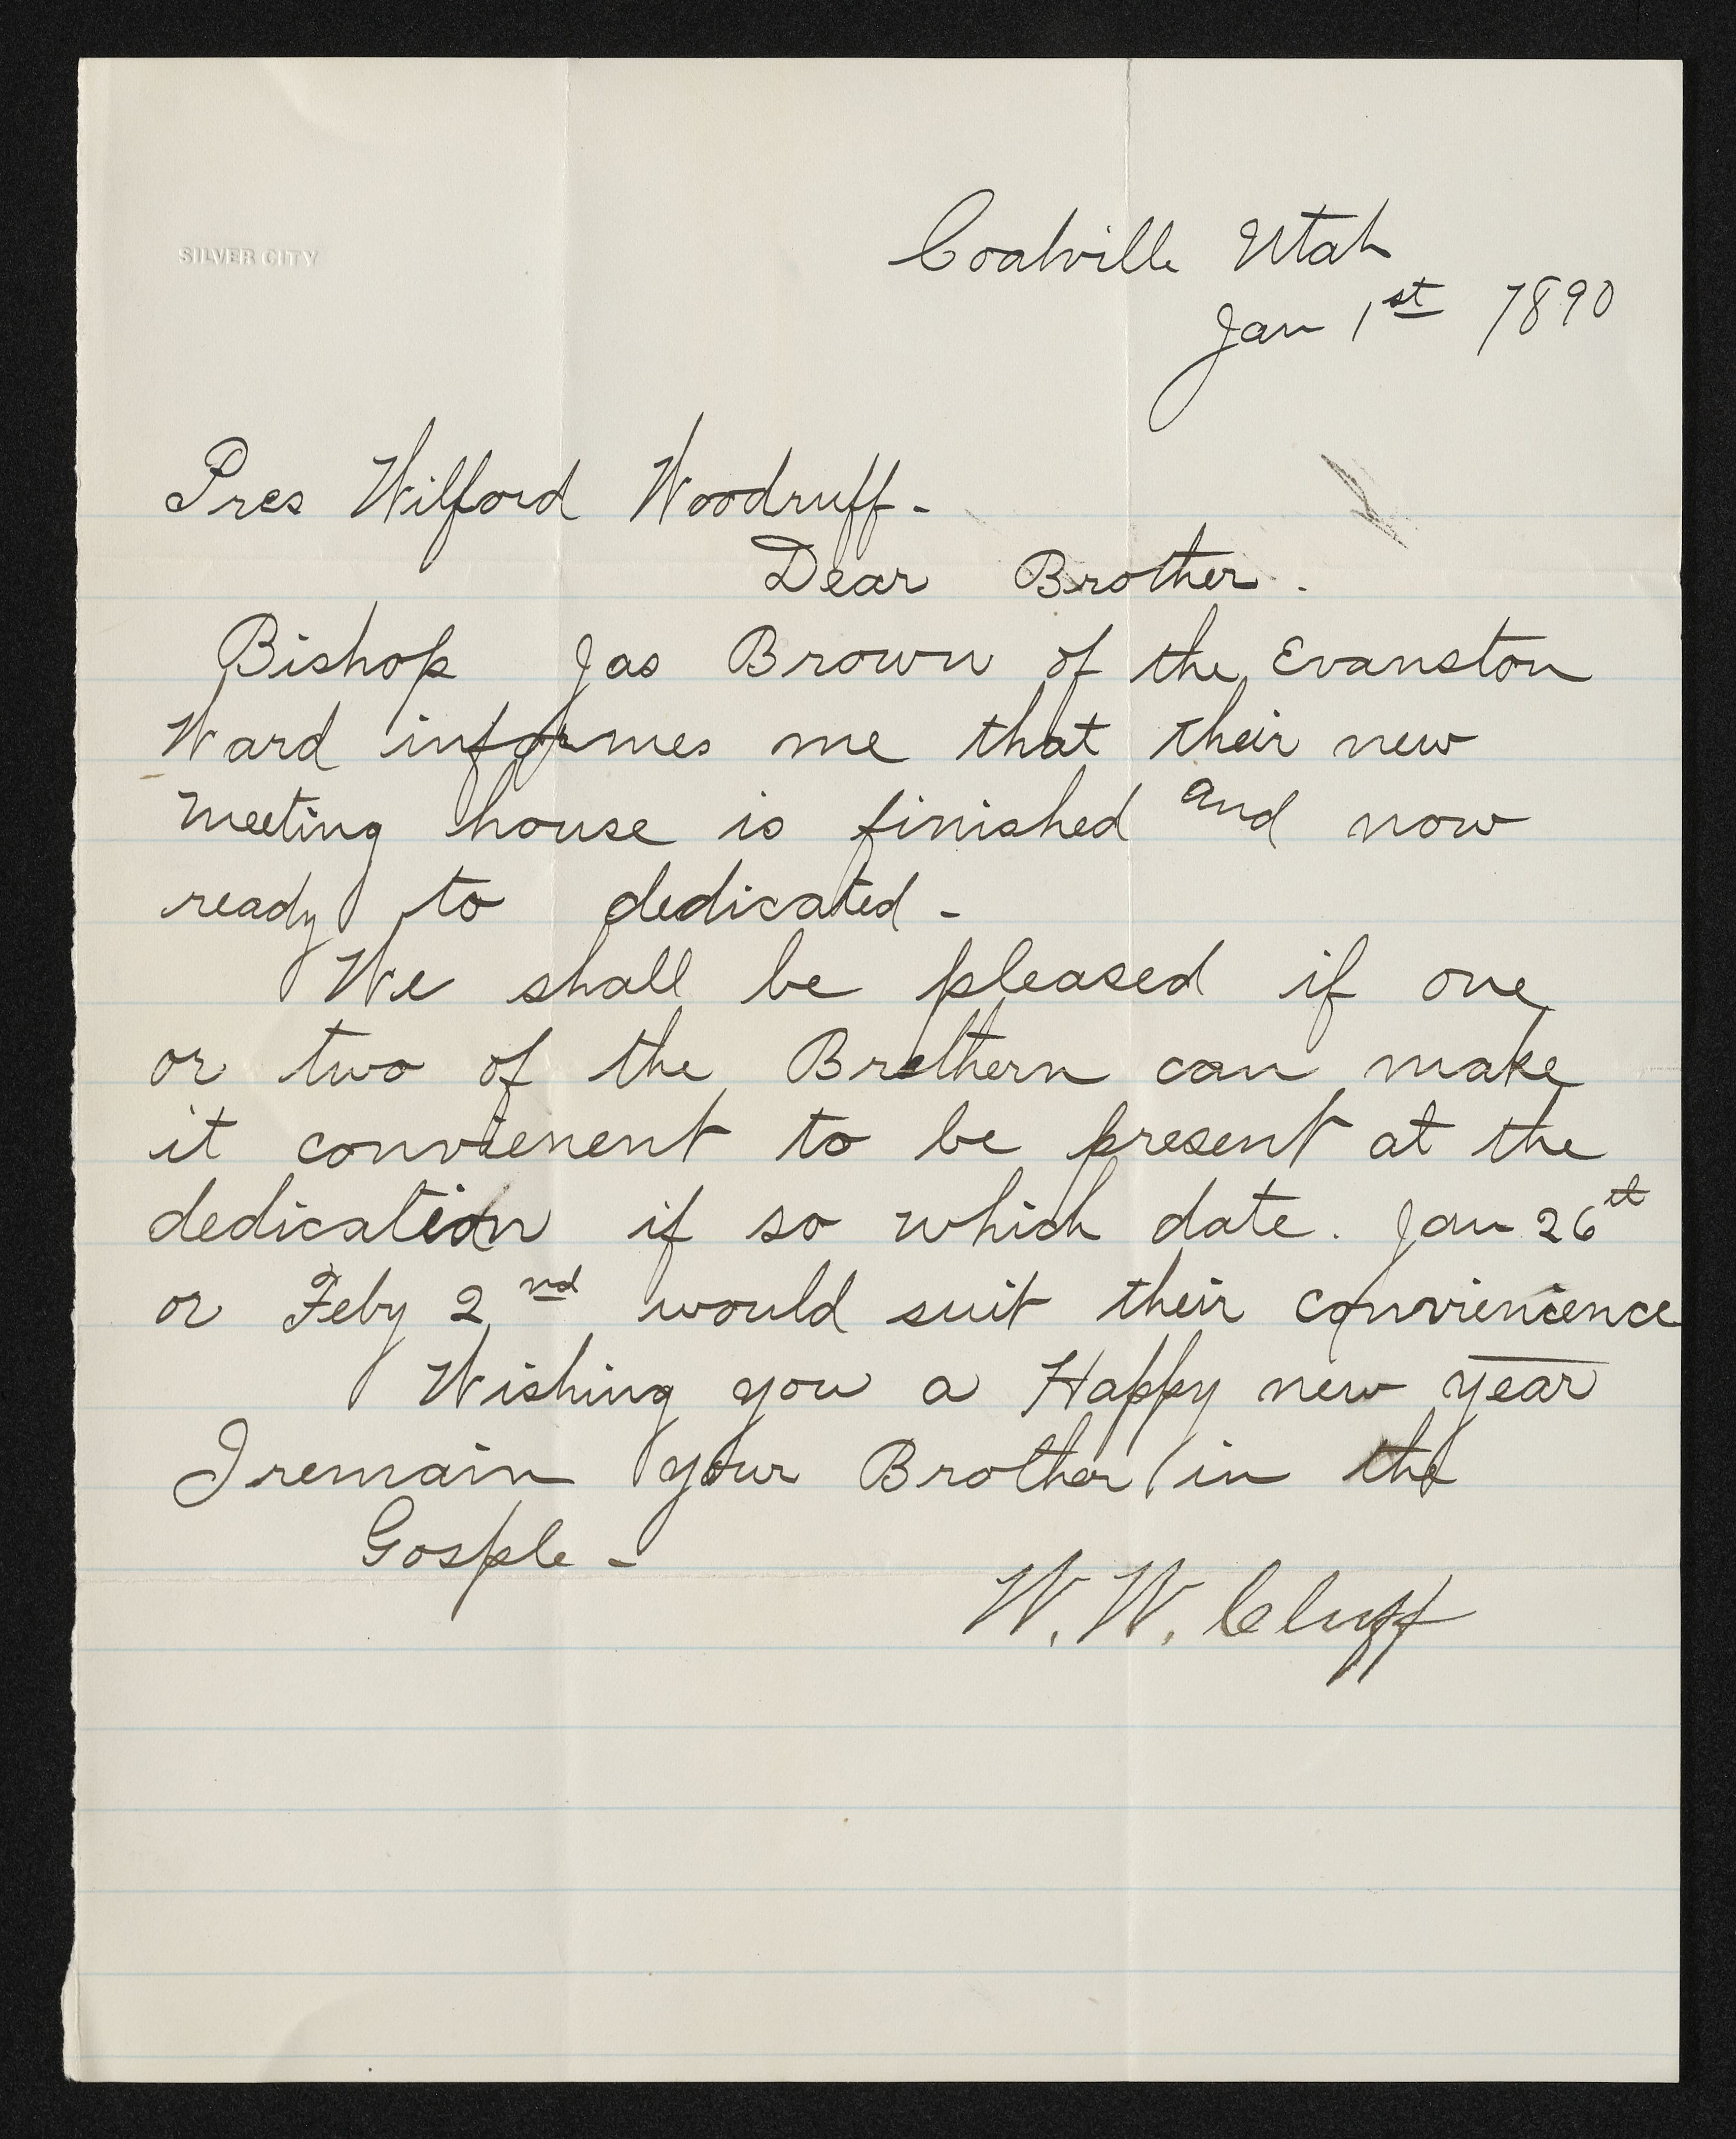 SILVER CITY
Coalville Utah
Jan 1st 1890
Pres Wilford Woodruff-
Dear Brother.
Bishop Jas Brown of the Evanston
Ward informes me that their new
meeting house is finished and now
ready to dedicated-
We shall be pleased if one
or two of the Brethern can make
it convienent to be present at the
dedication if so which date. Jan 26th
or Feby 2nd would suit their convienience
Wishing you a Happy new year
I remain your Brother in the
Gosple-
W. W. Cluff